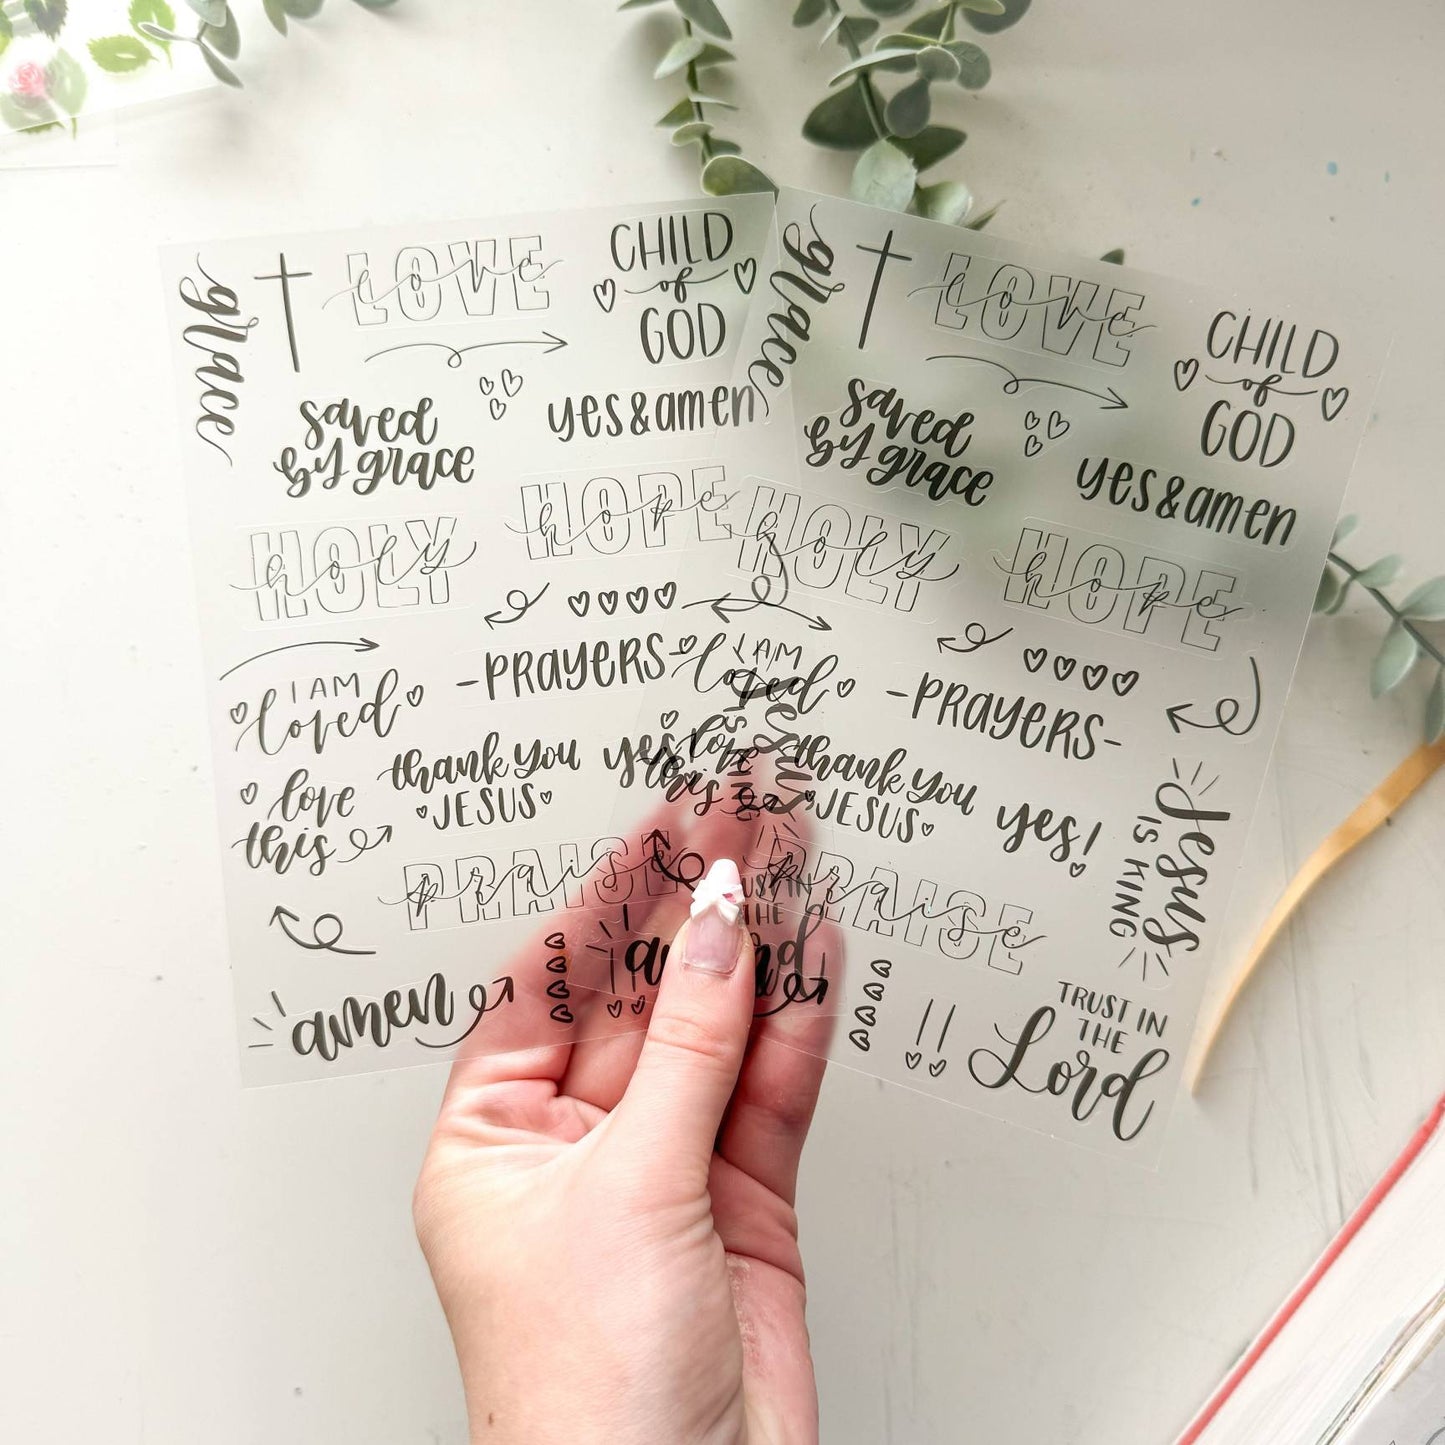 grace
LOVE
love
CHILD
of
GOD
saved
by grace
yes&amen
HOLY
holy
HOPE
hope
I AM
loved
-PRAYERS-
love
this
thank you
JESUS
yes
PRAISE
praise
amen
grace
LOVE
love
CHILD
of
GOD
saved
by grace
yes&amen
HOLY
holy
HOPE
hope
I AM
loved
-PRAYERS-
love
this
thank you
JESUS
yes!
Jesus
IS KING
PRAISE
praise
TRUST IN
THE
Lord
Jesus
IS KING
TRUST IN
THE